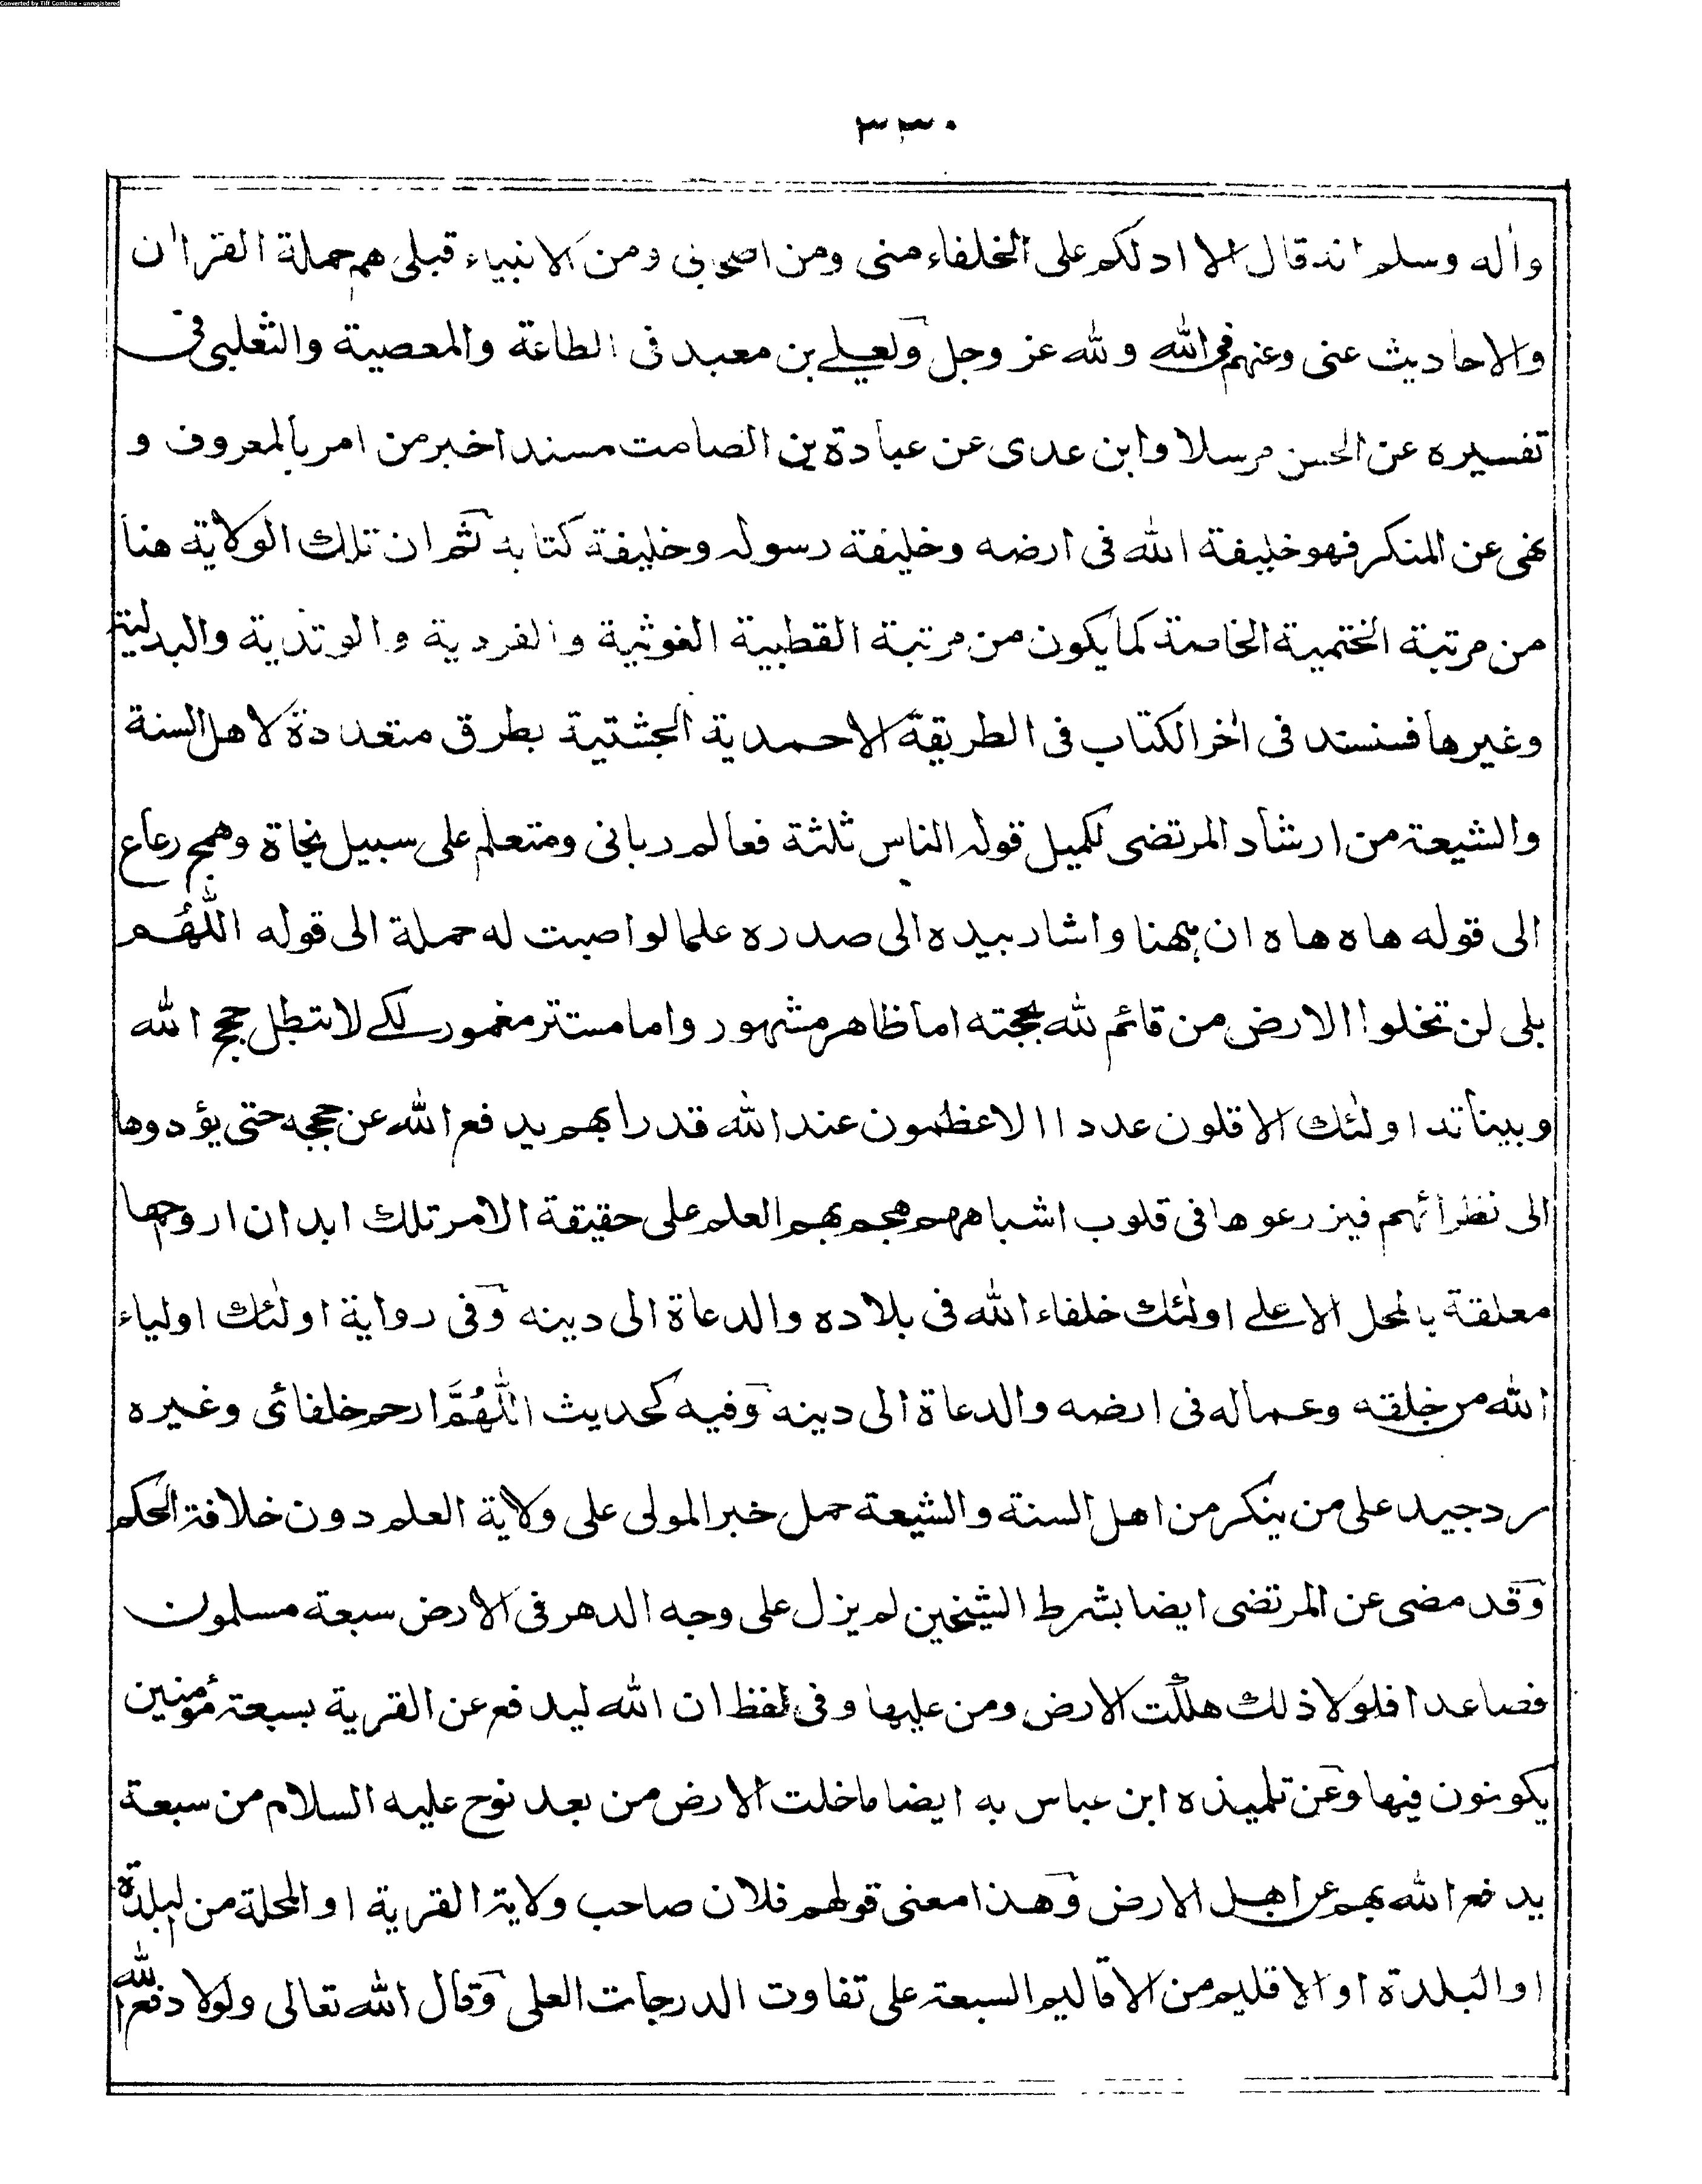 Converted by Tiff Combine - unregistered
٣٣٠
واٰله وسلم انه قال الا ادلكم على الخلفاء منى ومن اصحابى ومن الانبياء قبلى هم حملة القراٰن
والاحاديث عنى وعنهم فى الله ولله عز وجل ولعلے بن معبد فى الطاعة والمعصية والثعلبى فى
تفسيره عن الحسن مرسلا وابن عدى عن عبادة بن الصامت مسندا خبر من امر بالمعروف و
نهى عن المنكر فهو خليفة الله فى ارضه وخليفة رسوله وخليفة كتابه ثم ان تلك الولاية هنا
من مرتبة الختمية الخاصة كما يكون من مرتبة القطبية الغوثية والفردية والوتدية والبدلية
وغيرها فسنسند فى اٰخر الكتاب فى الطريقة الاحمدية الجشتية بطرق متعددة لاهل السنة
والشيعة من ارشاد المرتضى لكميل قوله الناس ثلثة فعالم ربانى ومتعلم على سبيل نجاة وهمج رعاع
الى قوله هاه هاه ان ههنا واشار بيده الى صدره علما لو اصبت له حملة الى قوله اللّٰهُم
بلى لن تخلوا الارض من قائم لله بحجته اما ظاهر مشهور واما مستتر مغمور لكے لا تبطل حجج الله
وبيناته اولٰئك الاقلون عددا الاعظمون عند الله قدرا بهم يدفع الله عن حججه حتى يؤدوها
الى نظرائهم فيزرعوها فى قلوب اشباههم هجم بهم العلم على حقيقة الامر تلك ابدان اروحها
معلقة بالمحل الاعلے اولٰئك خلفاء الله فى بلاده والدعاة الى دينه وفى رواية اولٰئك اولياء
الله من خلقه وعماله فى ارضه والدعاة الى دينه وفيه كحديث اللّٰهُمَّ ارحم خلفائى وغيره
رد جيد على من ينكر من اهل السنة والشيعة حمل خبر المولى على ولاية العلم دون خلافة الحكم
وقد مضى عن المرتضى ايضا بشرط الشيخين لم يزل على وجه الدهر فى الارض سبعة مسلمون
فصاعدا فلولا ذلك هلكت الارض ومن عليها وفى لفظ ان الله ليدفع عن القرية بسبعة مؤمنين
يكونون فيها وعن تلميذه ابن عباس به ايضا ما خلت الارض من بعد نوح عليه السلام من سبعة
يدفع الله بهم عن اهل الارض وهذا معنى قولهم فلان صاحب ولاية القرية او المحلة من البلدة
او البلدة او الاقليم من الاقاليم السبعة على تفاوت الدرجات العلى وقال الله تعالى ولولا دفع الله